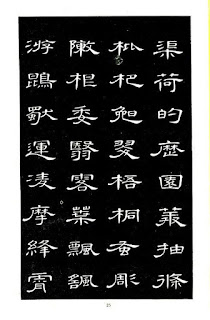 渠荷的歷園莽抽條
枇杷晚翠梧桐蚤彫
陳根委翳落葉飄颻
游鵾獨運淩摩絳霄